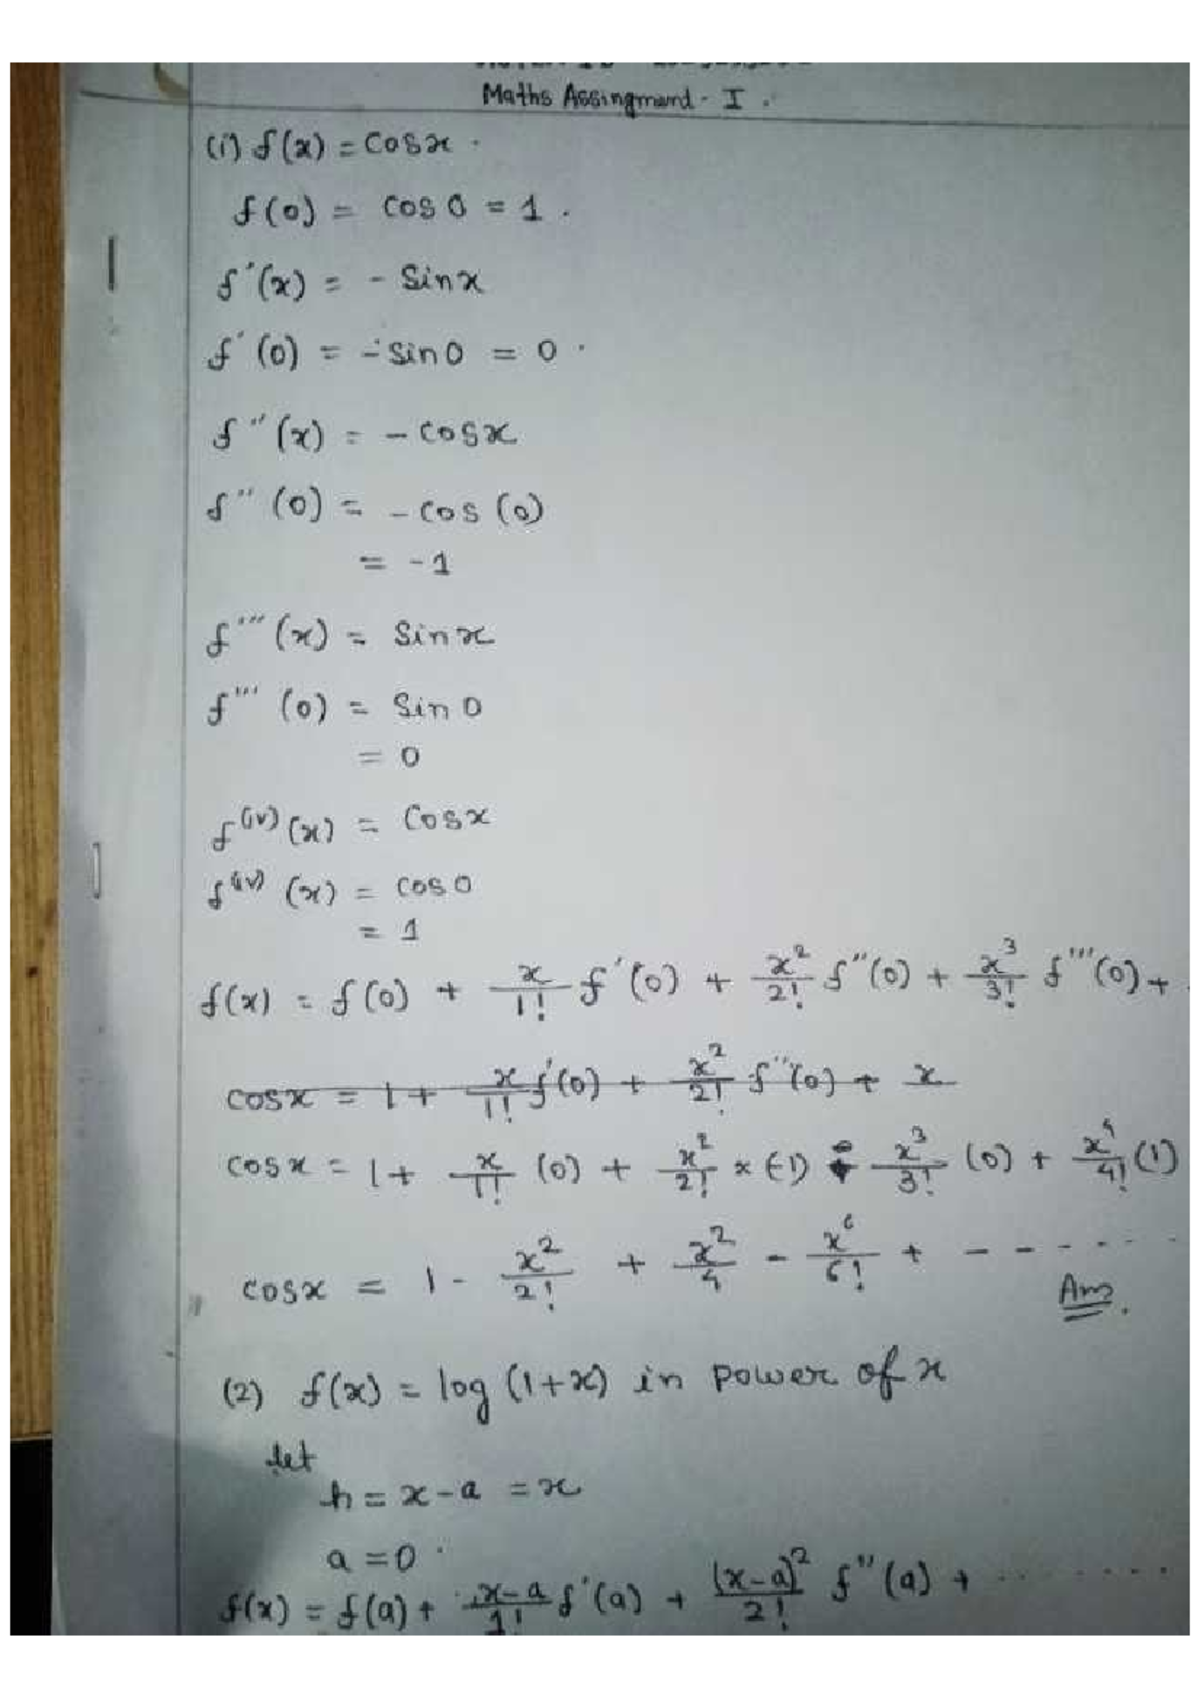 Maths Assingmend - I.
(i) f(x) = Cosx.
f(0) = cos 0 = 1.
f'(x) = - Sinx
f'(0) = - sin0 = 0.
f''(x) = - cosx
f''(0) = - cos (0)
= -1
f'''(x) = Sinx
f'''(0) = Sin 0
= 0
f^(iv)(x) = Cosx
f^(iv)(x) = cos 0
= 1
f(x) = f(0) + x/1! f'(0) + x²/2! f''(0) + x³/3! f'''(0) +
cosx = 1 + x/1! f'(0) + x²/2! f''(0) + x
cosx = 1 + x/1! (0) + x²/2! × (-1) + x³/3! (0) + x⁴/4! (1)
cosx = 1 - x²/2! + x²/4 - x⁶/6! + - - - - - - -
Ans.
(2) f(x) = log (1+x) in power of x
let
h = x - a = x
a = 0.
f(x) = f(a) + x-a/1! f'(a) + (x-a)²/2! f''(a) + .......